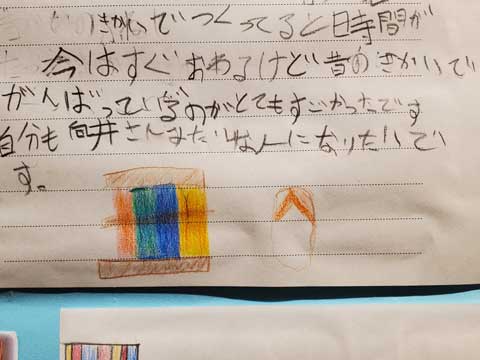 きかいでつくってると時間が
今はすぐおわるけど昔のきかいで
がんばっているのがとてもすごかったです
自分も向井さんみたいな人になりたいで
す。